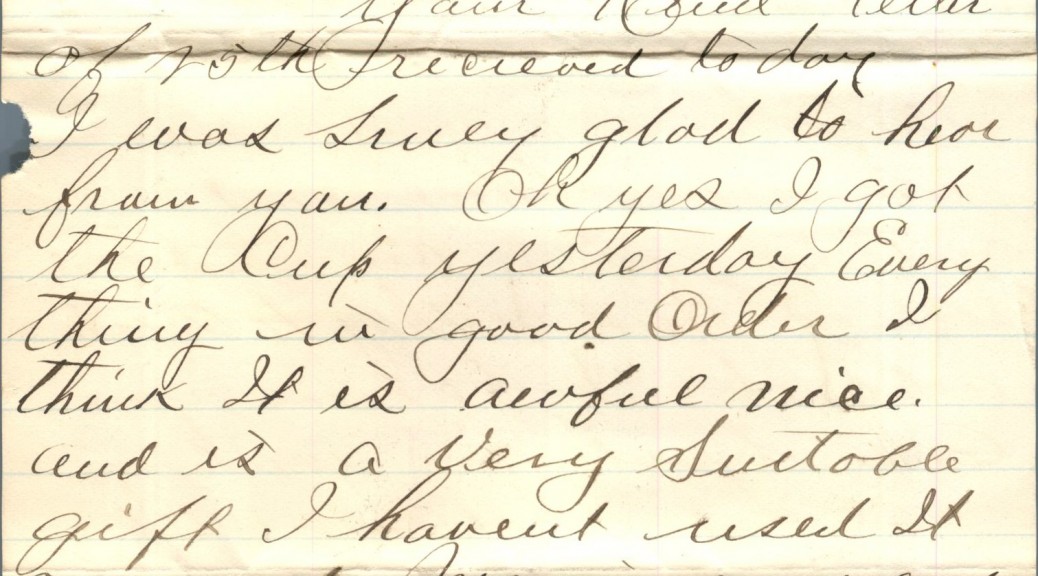 Your Kind letter
of 25th recieved to day
I was truey glad to hear
from you. Oh yes I got
the Cup yesterday Every
thing in good Order I
think It is awful nice.
and is a Very Suitable
gift I havent used It